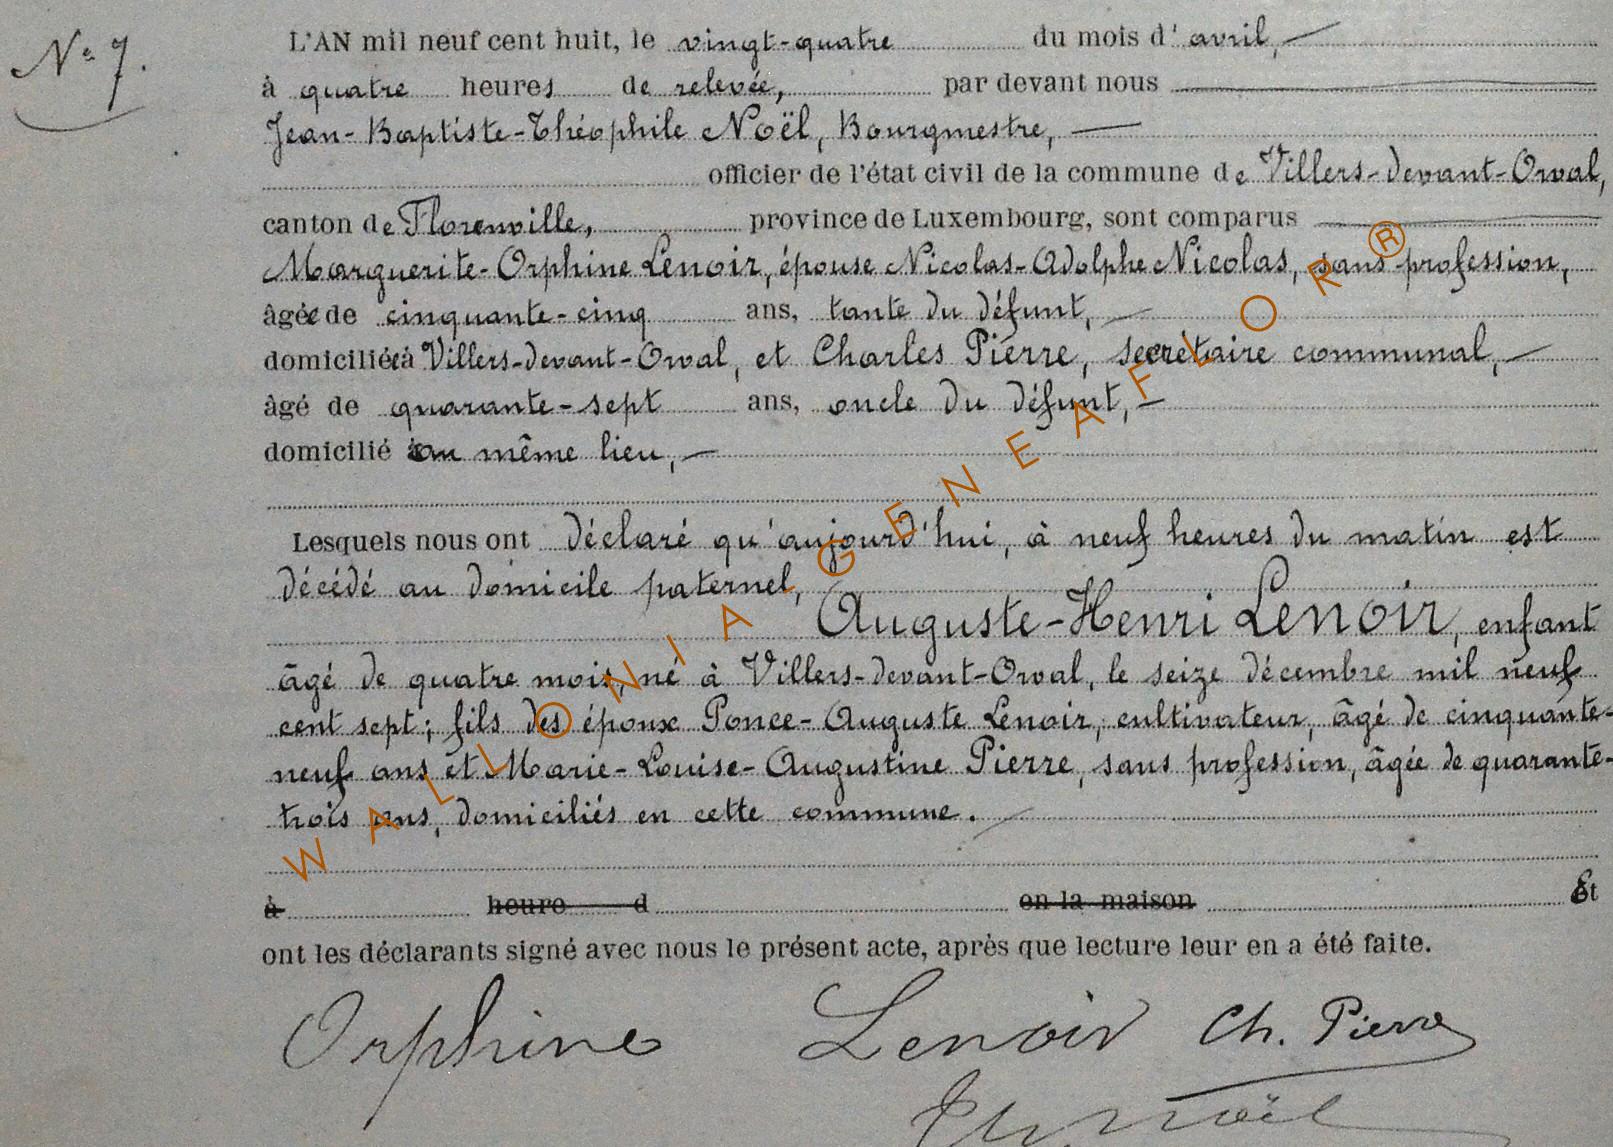 Nº 7.
L'AN mil neuf cent huit, le vingt-quatre du mois d'avril, —
à quatre heures de relevée, par devant nous
Jean-Baptiste-Théophile Noël, Bourgmestre, —
officier de l'état civil de la commune de Villers-devant-Orval,
canton de Florenville, province de Luxembourg, sont comparus
Marguerite-Orphine Lenoir, épouse Nicolas-Adolphe Nicolas, sans profession,
âgée de cinquante-cinq ans, tante du défunt, —
domiciliée à Villers-devant-Orval, et Charles Pierre, secrétaire communal, —
âgé de quarante-sept ans, oncle du défunt, —
domicilié au même lieu, —
Lesquels nous ont déclaré qu'aujourd'hui, à neuf heures du matin est
décédé au domicile paternel,
Auguste-Henri Lenoir, enfant
âgé de quatre mois, né à Villers-devant-Orval, le seize décembre mil neuf
cent sept; fils des époux Ponce-Auguste Lenoir, cultivateur, âgé de cinquante-
neuf ans et Marie-Louise-Augustine Pierre, sans profession, âgée de quarante-
trois ans, domiciliés en cette commune.
à heure d en la maison Et
ont les déclarants signé avec nous le présent acte, après que lecture leur en a été faite.
Orphine Lenoir Ch. Pierre
Th. Noël
WALLONIA GENEAFLOR®